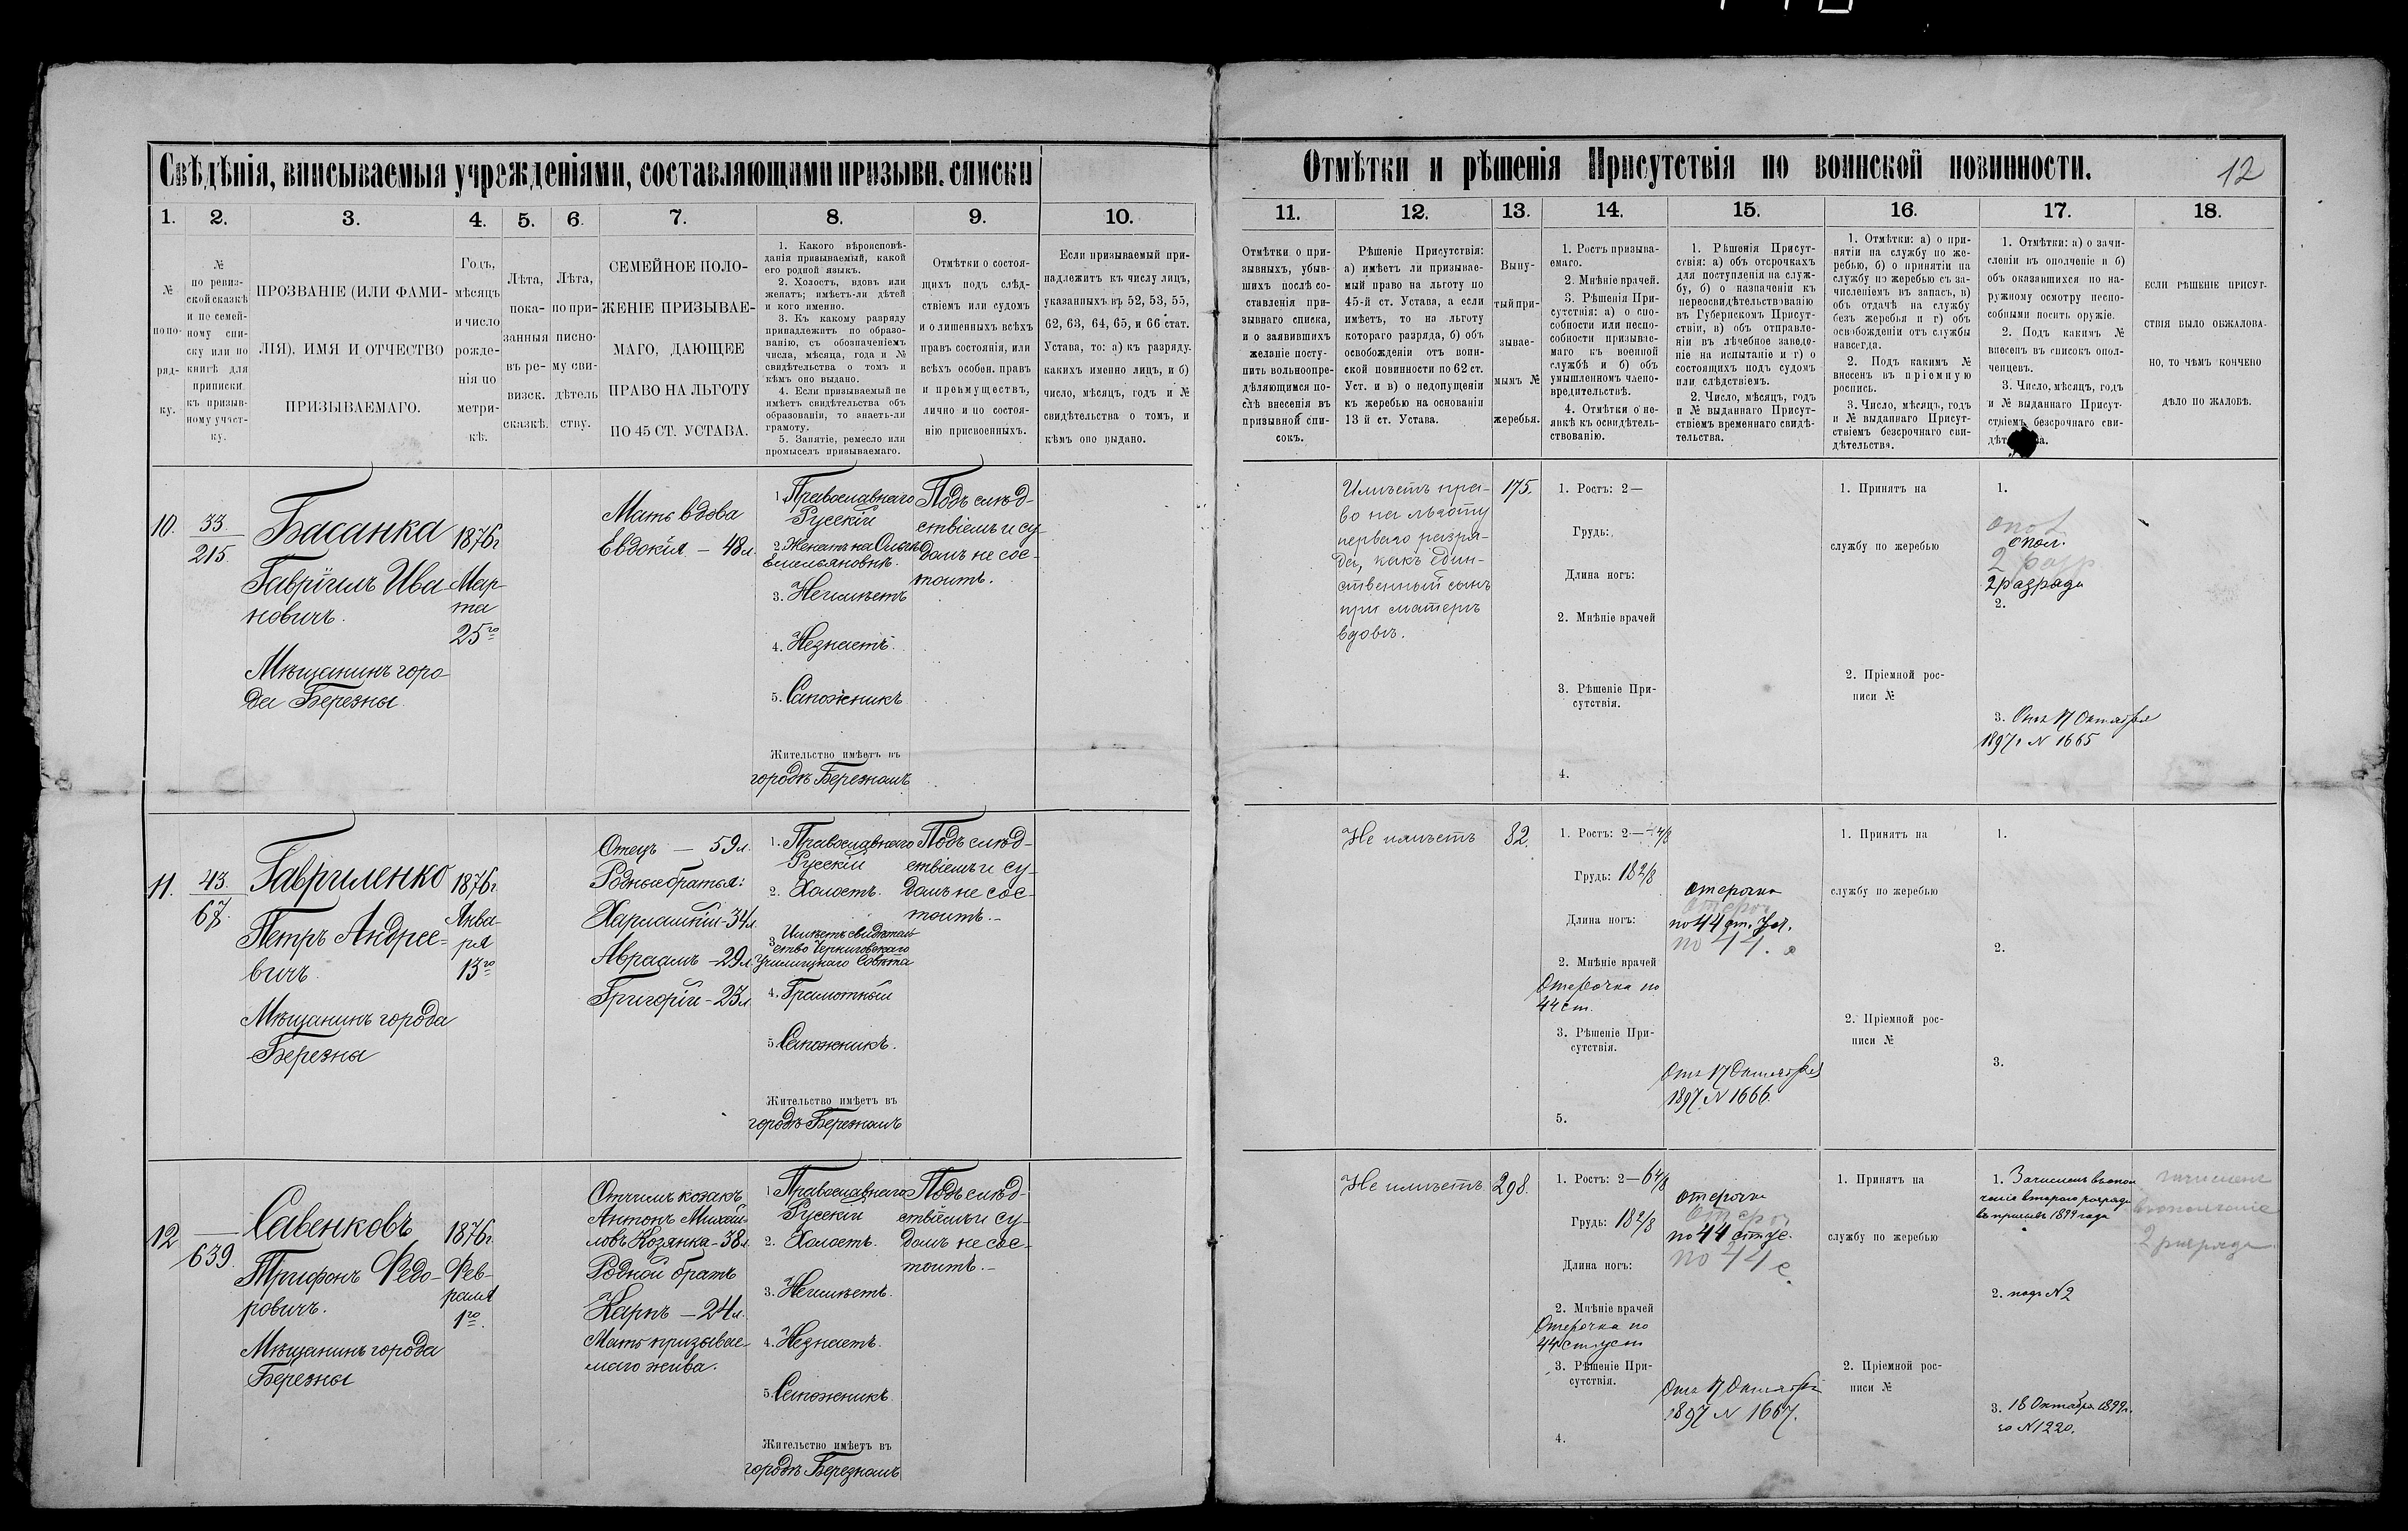 Свѣдѣнія, вписываемыя учрежденіями, составляющими призывн. списки
1.
2.
3.
4.
5.
6.
7.
8.
9.
10.
№
по по-
ряд-
ку.
№
по ревиз-
ской сказкѣ
и по семей-
ному спи-
ску или по
книгѣ для
приписки
къ призыв-
ному участ-
ку.
ПРОЗВАНІЕ (ИЛИ ФАМИ-
ЛІЯ), ИМЯ И ОТЧЕСТВО
ПРИЗЫВАЕМАГО.
Годъ,
мѣсяцъ
и число
рожде-
нія по
метри-
кѣ.
Лѣта,
пока-
занныя
въ ре-
визск.
сказкѣ.
Лѣта,
по при-
писно-
му сви-
дѣтель
ству.
СЕМЕЙНОЕ ПОЛО-
ЖЕНІЕ ПРИЗЫВАЕ-
МАГО, ДАЮЩЕЕ
ПРАВО НА ЛЬГОТУ
ПО 45 СТ. УСТАВА.
1. Какого вѣроисповѣ-
данія призываемый, какой
его родной языкъ.
2. Холостъ, вдовъ или
женатъ; имѣетъ-ли дѣтей
и кого именно.
3. Къ какому разряду
принадлежитъ по образо-
ванію, съ обозначеніемъ
числа, мѣсяца, года и №
свидѣтельства о томъ и
кѣмъ оно выдано.
4. Если призываемый не
имѣетъ свидѣтельства объ
образованіи, то знаетъ-ли
грамоту.
5. Занятіе, ремесло или
промыселъ призываемаго.
Отмѣтки о состоя-
щихъ подъ слѣд-
ствіемъ или судомъ
и о лишенныхъ всѣхъ
правъ состоянія, или
всѣхъ особен. правъ
и преимуществъ,
лично и по состоя-
нію присвоенныхъ.
Если призываемый при-
надлежитъ къ числу лицъ,
указанныхъ въ 52, 53, 55,
62, 63, 64, 65, и 66 стат.
Устава, то: а) къ разряду.
какихъ именно лицъ, и б)
число, мѣсяцъ, годъ и №
свидѣтельства о томъ, и
кѣмъ оно выдано.
10.
33.
215.
Басанка
Гавріилъ Ива
новичъ.
Мѣщанинъ горо-
да Березны.
1876г
Мар-
та
25го
Мать вдова
Евдокія — 48 л.
1. Православнаго
Русскій
2. Женатъ на Ольгѣ
Емельяновнѣ.
3. Неимѣетъ
4. Незнаетъ.
5. Сапожникъ
Жительство имѣетъ въ
городѣ Березномъ
Подъ слѣд-
ствіемъ и су-
домъ не сос-
тоитъ.
11.
43.
67.
Гавриленко
Петръ Андрее-
вичъ.
Мѣщанинъ города
Березны
1876г.
Янва-
ря
13го
Отецъ — 59 л.
Родные братья:
Харлампій - 34 л.
Авраамъ - 29 л.
Григорій - 23 л.
1. Православнаго
Русскій
2. Холостъ.
3. Имѣетъ свидѣтель
ство Черниговскаго
Училищнаго Совѣта
4. Грамотный
5. Сапожникъ.
Жительство имѣетъ въ
городѣ Березномъ
Подъ слѣд-
ствіемъ и су-
домъ не сос-
тоитъ.—
12
639.
Савенковъ
Трифонъ Ѳедо-
ровичъ.
Мѣщанинъ города
Березны
1876г.
Фев-
раля
1го.
Отчимъ козакъ
Антонъ Михай-
ловъ Козянка - 38 л.
Родной братъ
Карпъ — 24 л.
Мать призывае-
маго жива.
1. Православнаго
Русскій
2. Холостъ.
3. Неимѣетъ.
4. Незнаетъ.
5. Сапожникъ.
Жительство имѣетъ въ
городѣ Березномъ
Подъ слѣд-
ствіемъ и су-
домъ не сос-
тоитъ.—
Отмѣтки и рѣшенія Присутствія по воинской повинности.
12
11.
12.
13.
14.
15.
16.
17.
18.
Отмѣтки о при-
зывныхъ, убыв-
шихъ послѣ со-
ставленія при-
зывнаго списка,
и о заявившихъ
желаніе посту-
пить вольноопре-
дѣляющимся по-
слѣ внесенія въ
призывной спи-
сокъ.
Рѣшеніе Присутствія:
а) имѣетъ ли призывае-
мый право на льготу по
45-й ст. Устава, а если
имѣетъ, то на льготу
котораго разряда, б) объ
освобожденіи отъ воин-
ской повинности по 62 ст.
Уст. и в) о недопущеніи
къ жеребью на основаніи
13 й ст. Устава.
Выну-
тый при-
зывае-
мымъ №
жеребья.
1. Ростъ призыва-
емаго.
2. Мнѣніе врачей.
3. Рѣшенія При-
сутствія: а) о спо-
собности или неспо-
собности призывае-
маго къ военной
службѣ и б) объ
умышленномъ члено-
вредительствѣ.
4. Отмѣтки о не-
явкѣ къ освидѣтель-
ствованію.
1. Рѣшенія Присут-
ствія: а) объ отсрочкахъ
для поступленія на служ-
бу, б) о назначеніи къ
переосвидѣтельствованію
въ Губернскомъ Присут-
ствіи, в) объ отправле-
ніи въ лѣчебное заведе-
ніе на испытаніе и г) о
состоящихъ подъ судомъ
или слѣдствіемъ.
2. Число, мѣсяцъ, годъ
и № выданнаго Присут-
ствіемъ временнаго свидѣ-
тельства.
1. Отмѣтки: а) о при-
нятіи на службу по же-
ребью, б) о принятіи на
службу по жеребью съ за-
численіемъ въ запасъ, в)
объ отдачѣ на службу
безъ жеребья и г) объ
освобожденіи отъ службы
навсегда.
2. Подъ какимъ №
внесенъ въ пріемную
роспись.
3. Число, мѣсяцъ, годъ
и № выданнаго Присут-
ствіемъ безсрочнаго сви-
дѣтельства.
1. Отмѣтки: а) о зачи-
сленіи въ ополченіе и б)
объ оказавшихся по на-
ружному осмотру неспо-
собными носить оружіе.
2. Подъ какимъ №
внесенъ въ списокъ опол-
ченцевъ.
3. Число, мѣсяцъ, годъ
и № выданнаго Присут-
ствіемъ безсрочнаго сви-
ЕСЛИ РѢШЕНІЕ ПРИСУТ-
СТВІЯ БЫЛО ОБЖАЛОВА-
НО, ТО ЧѢМЪ КОНЧЕНО
ДѢЛО ПО ЖАЛОБѢ.
Имѣетъ пра-
во на льготу
перваго разря-
да, какъ един-
ственный сынъ
при матерѣ
вдовѣ.
175.
1. Ростъ: 2 —
Грудь:
Длина ногъ:
2. Мнѣніе врачей
3. Рѣшеніе При-
сутствія.
4.
1. Принятъ на
службу по жеребью
2. Пріемной рос-
писи №
1.
опол.
2 разр
2 разряда
2.
3. Отъ 17 Октября
1897 г. N 1665
Не имѣетъ
32.
1. Ростъ: 2 —
Грудь: 18 2/8
Длина ногъ:
2. Мнѣніе врачей
Отсрочка по
44 ст.
3. Рѣшеніе При-
сутствія.
5.
отсрочка
по 44 ст. Уст.
по 44. с
Отъ 17 Октября
1897 N 1666.
1. Принятъ на
службу по жеребью
2. Пріемной рос-
писи №
1.
2.
3.
Не имѣетъ
298.
1. Ростъ: 2 — 6 4/8
Грудь: 18 2/8
Длина ногъ:
2. Мнѣніе врачей
Отсрочка по
44 ст уст
3. Рѣшеніе При-
сутствія.
4.
отсрочка
по 44 ст ус.
по 44 с
Отъ 17 Октября
1897 N 1667.
1. Принятъ на
службу по жеребью
2. Пріемной рос-
писи №
1. Зачисленъ въ опол
ченіе втораго разряда
въ призывъ 1899 года
2. подъ N 2
3. 18 Октября 1899 г.
за N 1220.
зачисленъ
въ ополченіе
2 разряда